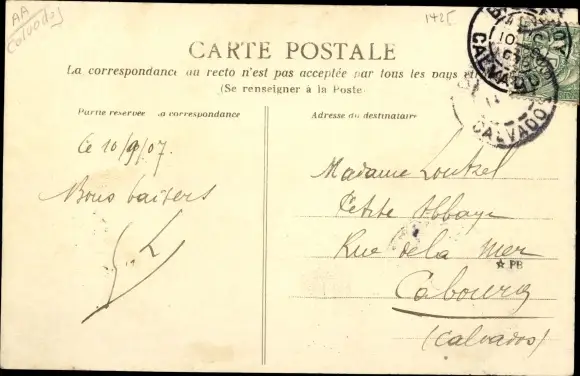 AA
Calvados
1425.
CARTE POSTALE
La correspondance au recto n'est pas acceptée par tous les pays
(Se renseigner à la Poste
Partie réservée la correspondance
Adresse du destinataire
Ce 10/9/07.
Bons baisers
Madame
Petite Abbaye
Rue de la Mer
★ PB
Cabourg
(Calvados)
CALVADOS
CALVADOS